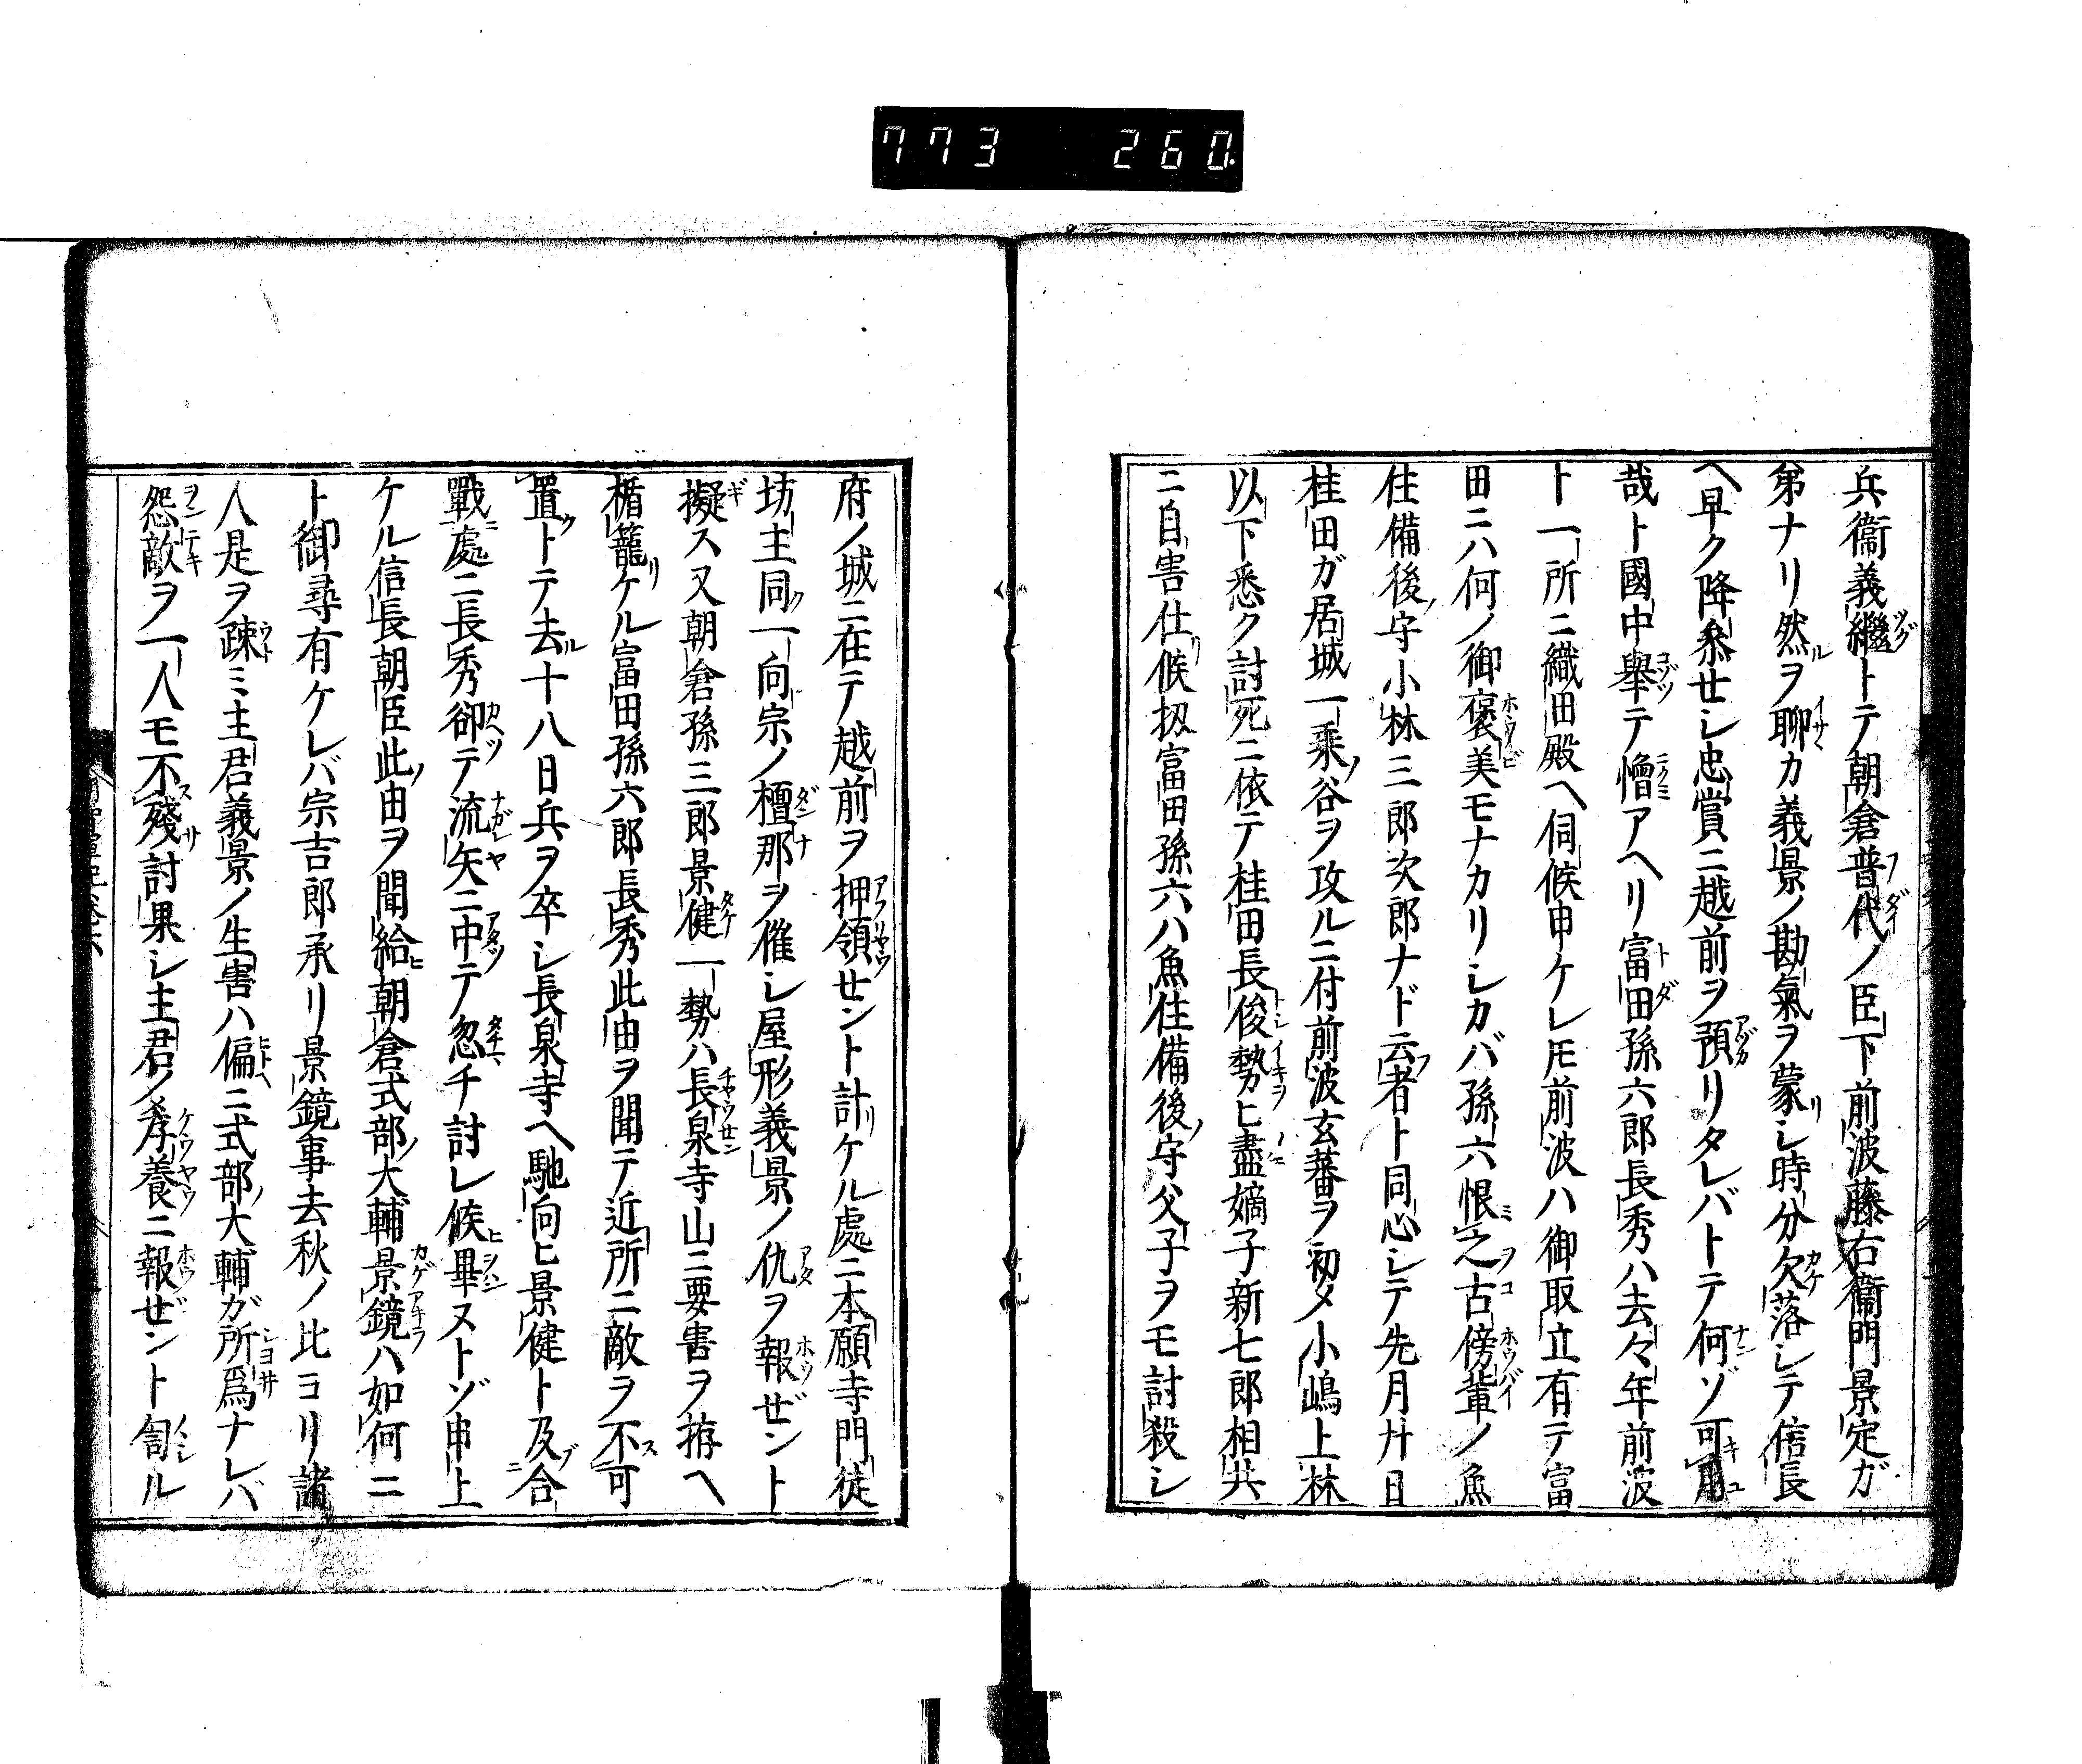 773 260
兵衞義繼トテ朝倉普代ノ臣下前波藤右衞門景定ガ
弟ナリ然ルヲ聊カ義景ノ勘氣ヲ蒙リシ時分欠落シテ信長
ヘ早ク降叅せシ忠賞ニ越前ヲ預リタレバトテ何ゾ可用
哉ト國中擧テ憎アヘリ富田孫六郎長秀ハ去々年前波
ト一所ニ織田殿ヘ伺候申ケレ𪜈前波ハ御取立有テ富
田ニハ何ノ御褒美モナカリシカバ孫六恨之古傍輩ノ魚
住備後ノ守小林三郎次郎ナド云フ者ト同心シテ先月廾日
桂田ガ居城一乗ノ谷ヲ攻ルニ付前波玄蕃ヲ初メ小嶋上林
以下悉ク討死ニ依テ桂田長俊勢ヒ盡嫡子新七郎相共
ニ自害仕リ候扨富田孫六ハ魚住備後ノ守父子ヲモ討殺シ
府ノ城ニ在テ越前ヲ押領せント計リケル處ニ本願寺門徒
坊主同ク一向宗ノ檀那ヲ催シ屋形義景ノ仇ヲ報ぜント
擬ス又朝倉孫三郎景健一勢ハ長泉寺山ニ要害ヲ拵ヘ
楯籠リケル富田孫六郎長秀此由ヲ聞テ近所ニ敵ヲ不可
置トテ去ル十八日兵ヲ卒シ長泉寺ヘ馳向ヒ景健ト及合
戰處ニ長秀卻テ流矢ニ中テ忽チ討レ候畢ヌトゾ申上
ケル信長朝臣此ノ由ヲ聞給ヒ朝倉式部ノ大輔景鏡ハ如何ニ
ト御尋有ケレバ宗吉郎承リ景鏡事去秋ノ比ヨリ諸
人是ヲ疎ミ主君義景ノ生害ハ偏ニ式部ノ大輔ガ所爲ナレバ
怨敵ヲ一人モ不殘討果シ主君ノ孝養ニ報ぜント訇ル